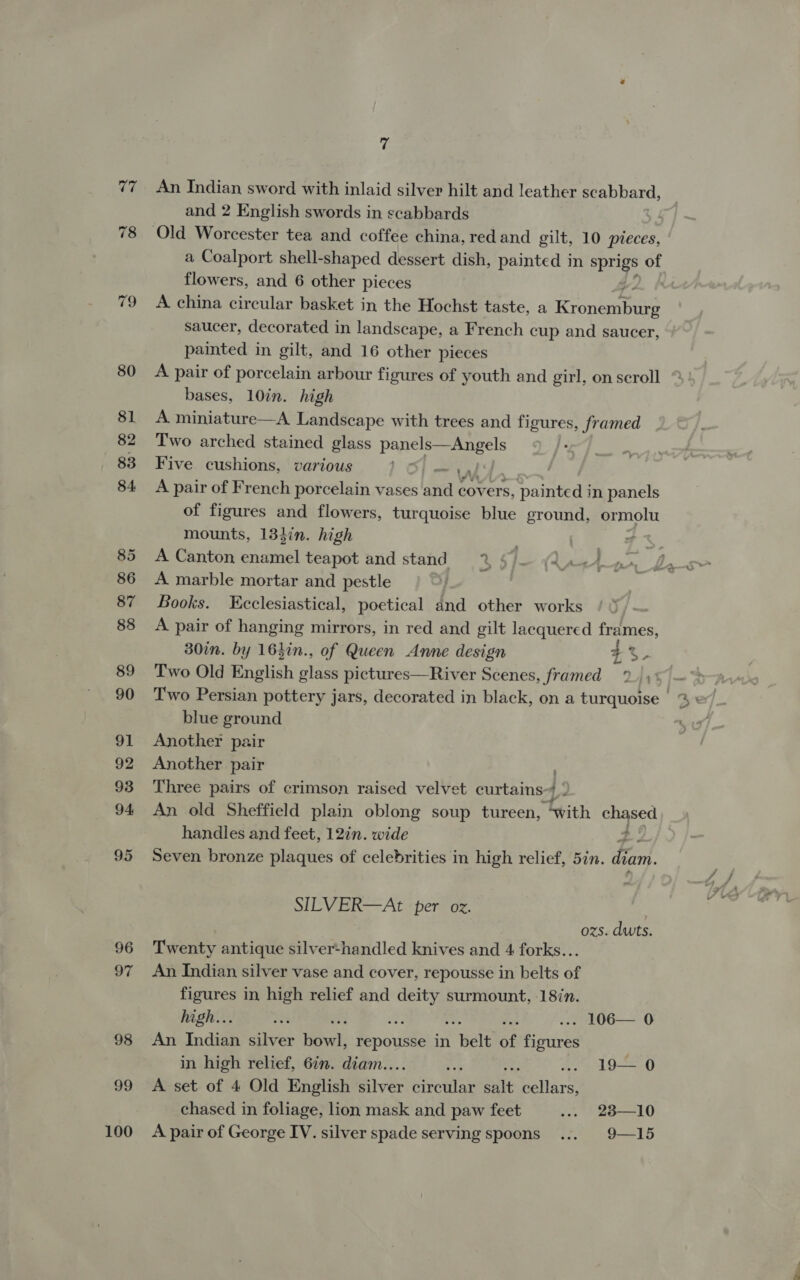 7
77 An Indian sword with inlaid silver hilt and leather scabbard,
and 2 English swords in scabbards
78 Old Worcester tea and coffee china, red and gilt, 10 pieces,
a Coalport shell-shaped dessert dish, painted in sprigs of
flowers, and 6 other pieces
79 A china circular basket in the Hochst taste, a Kronemburg
saucer, decorated in landscape, a French cup and saucer,
painted in gilt, and 16 other pieces
80 A pair of porcelain arbour figures of youth and girl, on scroll
bases, 10in. high
81 A miniature—A Landscape with trees and figures, framed
82 Two arched stained glass panels—Angels
83 Five cushions, various
84 A pair of French porcelain vases and covers, painted in panels
of figures and flowers, turquoise blue ground, ormolu
mounts, 13½in. high
85 A Canton enamel teapot and stand
86 A marble mortar and pestle
87 Books. Ecclesiastical, poetical and other works
88 A pair of hanging mirrors, in red and gilt lacquered frames,
30in. by 16½in., of Queen Anne design
89 Two Old English glass pictures—River Scenes, framed
90 Two Persian pottery jars, decorated in black, on a turquoise
blue ground
91 Another pair
92 Another pair
93 Three pairs of crimson raised velvet curtains
94 An old Sheffield plain oblong soup tureen, with chased
handles and feet, 12in. wide
95 Seven bronze plaques of celebrities in high relief, 5in. diam.
SILVER—At per oz.
ozs. dwts.
96 Twenty antique silver-handled knives and 4 forks...
97 An Indian silver vase and cover, repousse in belts of
figures in high relief and deity surmount, 18in.
high... ... ... ... ... ... ... 106— 0
98 An Indian silver bowl, repousse in belt of figures
in high relief, 6in. diam.... ... ... ... 19— 0
99 A set of 4 Old English silver circular salt cellars,
chased in foliage, lion mask and paw feet ... 23—10
100 A pair of George IV. silver spade serving spoons ... 9—15